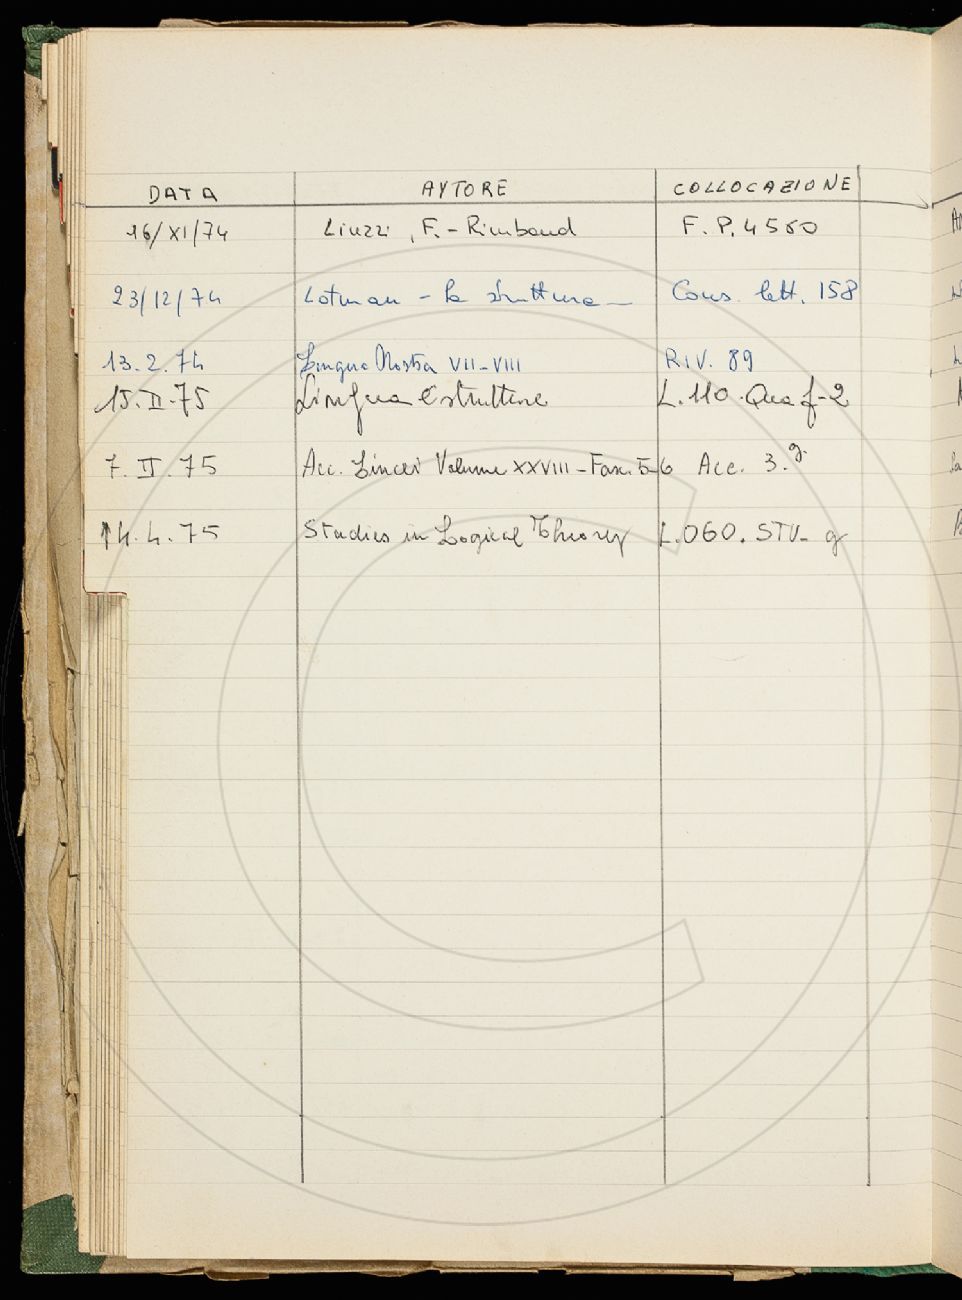 DATA AUTORE COLLOCAZIONE
16/XI/74 Liuzzi, F. - Rimbaud F. P. 4560
23/12/74 Lotman - la struttura - Cons. lett. 158
13.2.74 Lingua Nostra VII-VIII RIV. 89
15.II.75 Lingua e strutture L.110.Qua f-2
7.II.75 Acc. Lincei Volume XXVIII - Fasc. 5-6 Acc. 3.g
14.4.75 Studies in Logical Theory L.060. STU- g